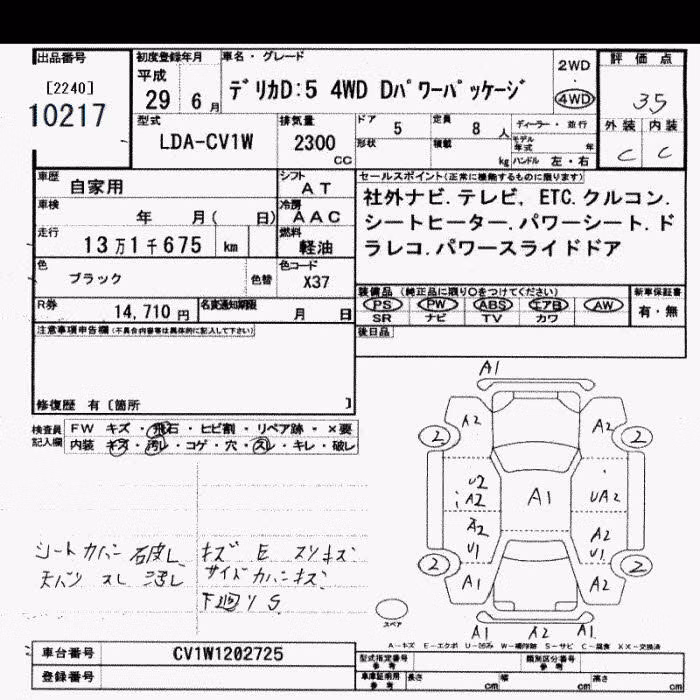 出品番号
[2240]
10217
初度登録年月
平成
29 6月
車名・グレード
デリカD:5 4WD Dパワーパッケージ
2WD
4WD
評価点
3.5
外装 内装
C C
型式
LDA-CV1W
排気量
2300
CC
ドア 5
定員 8人
形状
積載 kg
ディーラー・並行
モデル年式 年
ハンドル 左・右
車歴
自家用
シフト
AT
車検
年 月( 日)
冷房
AAC
走行
13万1千675 km
燃料
軽油
色
ブラック
色替
色コード
X37
R券
14,710円
名変通知期限
月 日
セールスポイント(正常に機能するものに限ります)
社外ナビ.テレビ, ETC.クルコン.
シートヒーター.パワーシート.ド
ラレコ.パワースライドドア
装備品 (純正品に限り○をつけてください)
PS PW ABS エアB AW
SR ナビ TV カワ
新車保証書
有・無
後日品
注意事項申告欄(不具合内容等は具体的に記入して下さい)
修復歴 有〔箇所 〕
検査員記入欄
FW キズ・飛石・ヒビ割・リペア跡・×要
内装 キズ・汚レ・コゲ・穴・スレ・キレ・破レ
シートカバー 破レ
天バリ スレ 汚レ
キズ E スリキズ
サイドカバーキズ
下廻りS
A1
A2 A2
2 2
U2
A2
A1
UA2
A2
U1
A2
U1
2 2
A1 A2
A1 A2 A1
スペア
A-キズ E-エクボ U-凹み W-補修跡 S-サビ C-腐食 XX-交換済
車台番号
CV1W1202725
登録番号
型式指定番号
参考
類別区分番号
参考
車庫証明用
参考
長さ cm
幅 cm
高さ cm